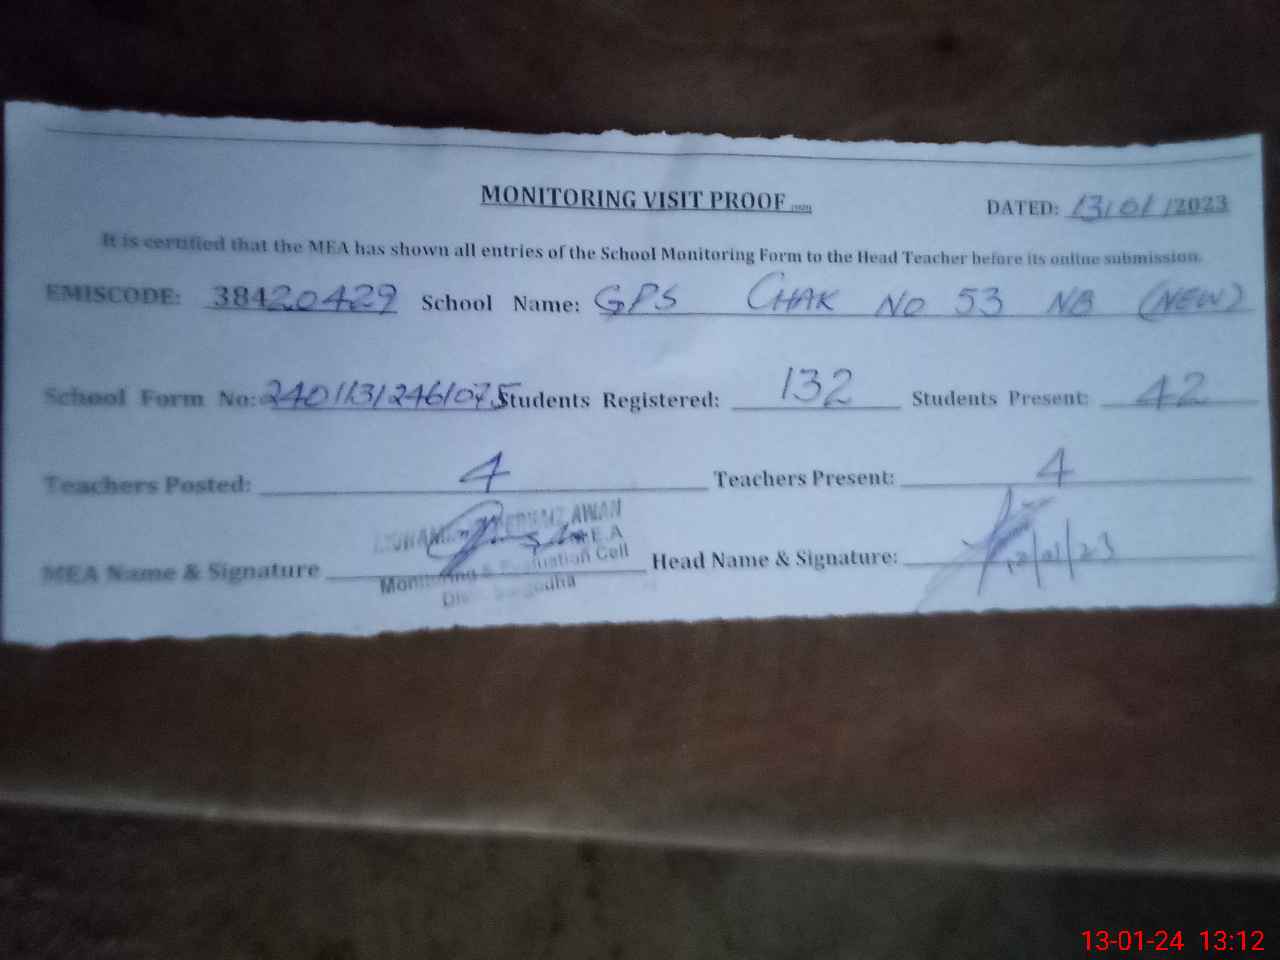 MONITORING VISIT PROOF
DATED: 13/01/2023
It is certified that the MEA has shown all entries of the School Monitoring Form to the Head Teacher before its online submission.
EMISCODE: 38420429 School Name: GPS CHAK NO 53 NB (NEW)
School Form No: 24011312461075 Students Registered: 132 Students Present: 42
Teachers Posted: 4 Teachers Present: 4
AWAN
M.E.A
MEA Name & Signature Monitoring & Evaluation Cell Head Name & Signature: /01/23
Sargodha
13-01-24 13:12